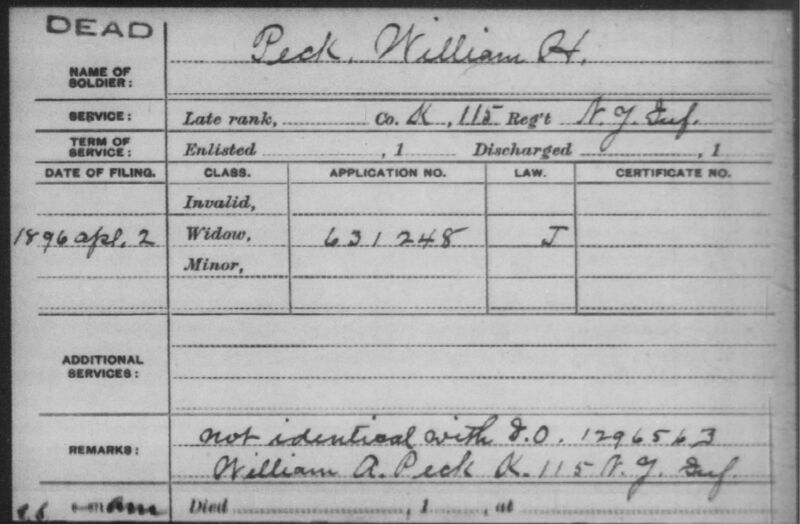 DEAD
NAME OF SOLDIER: Peck, William H.
SERVICE: Late rank, Co. K, 115 Reg't N.Y. Inf.
TERM OF SERVICE: Enlisted , 1 Discharged , 1
DATE OF FILING. CLASS. APPLICATION NO. LAW. CERTIFICATE NO.
Invalid,
1896 Apl. 2 Widow, 631248 J
Minor,
ADDITIONAL SERVICES:
REMARKS: not identical with I.O. 1296563
William A. Peck K. 115 N.Y. Inf.
Died , 1 , at